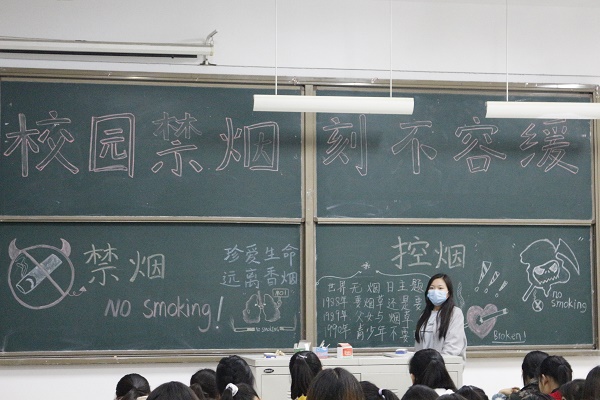 校园禁烟 刻不容缓
禁烟
NO smoking!
珍爱生命
远离香烟
NO!
no smoking
控烟
世界无烟日主题
1988年 要烟草还是要
1989年 妇女与烟草
1990年 青少年不要
!!!
Broken!
no
smoking